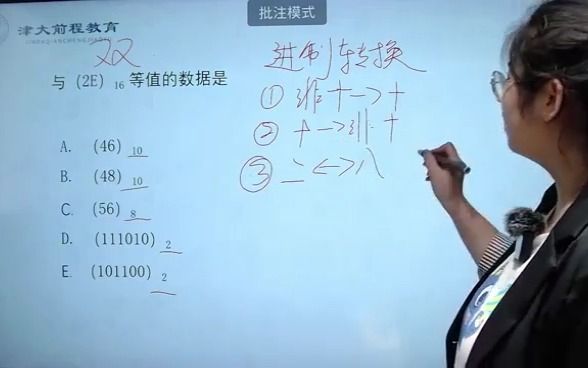 批注模式
津大前程教育
双
与 (2E) 16 等值的数据是
A. (46) 10
B. (48) 10
C. (56) 8
D. (111010) 2
E. (101100) 2
进制转换
① 非十→十
② 十→非十
③ 二<->八